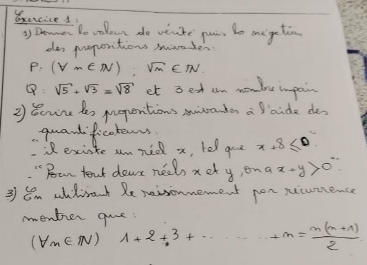 Exercice 1:
1) Donner la valeur de vérité puis la négation
des propositions suivantes:
P: (∀ n ∈ ℕ) ; √n ∈ ℕ.
Q: √5 + √3 = √8 et 3 est un nombre impair
2) Ecrire les propositions suivantes à l'aide des
quantificateurs.
- "il existe un réel x, tel que x+8 ≤ 0".
- "Pour tout deux réels x et y, on a x+y > 0".
3) En utilisant le raisonnement par récurrence
montrer que:
(∀n ∈ ℕ) 1+2+3+ ........ +n = n(n+1)/2